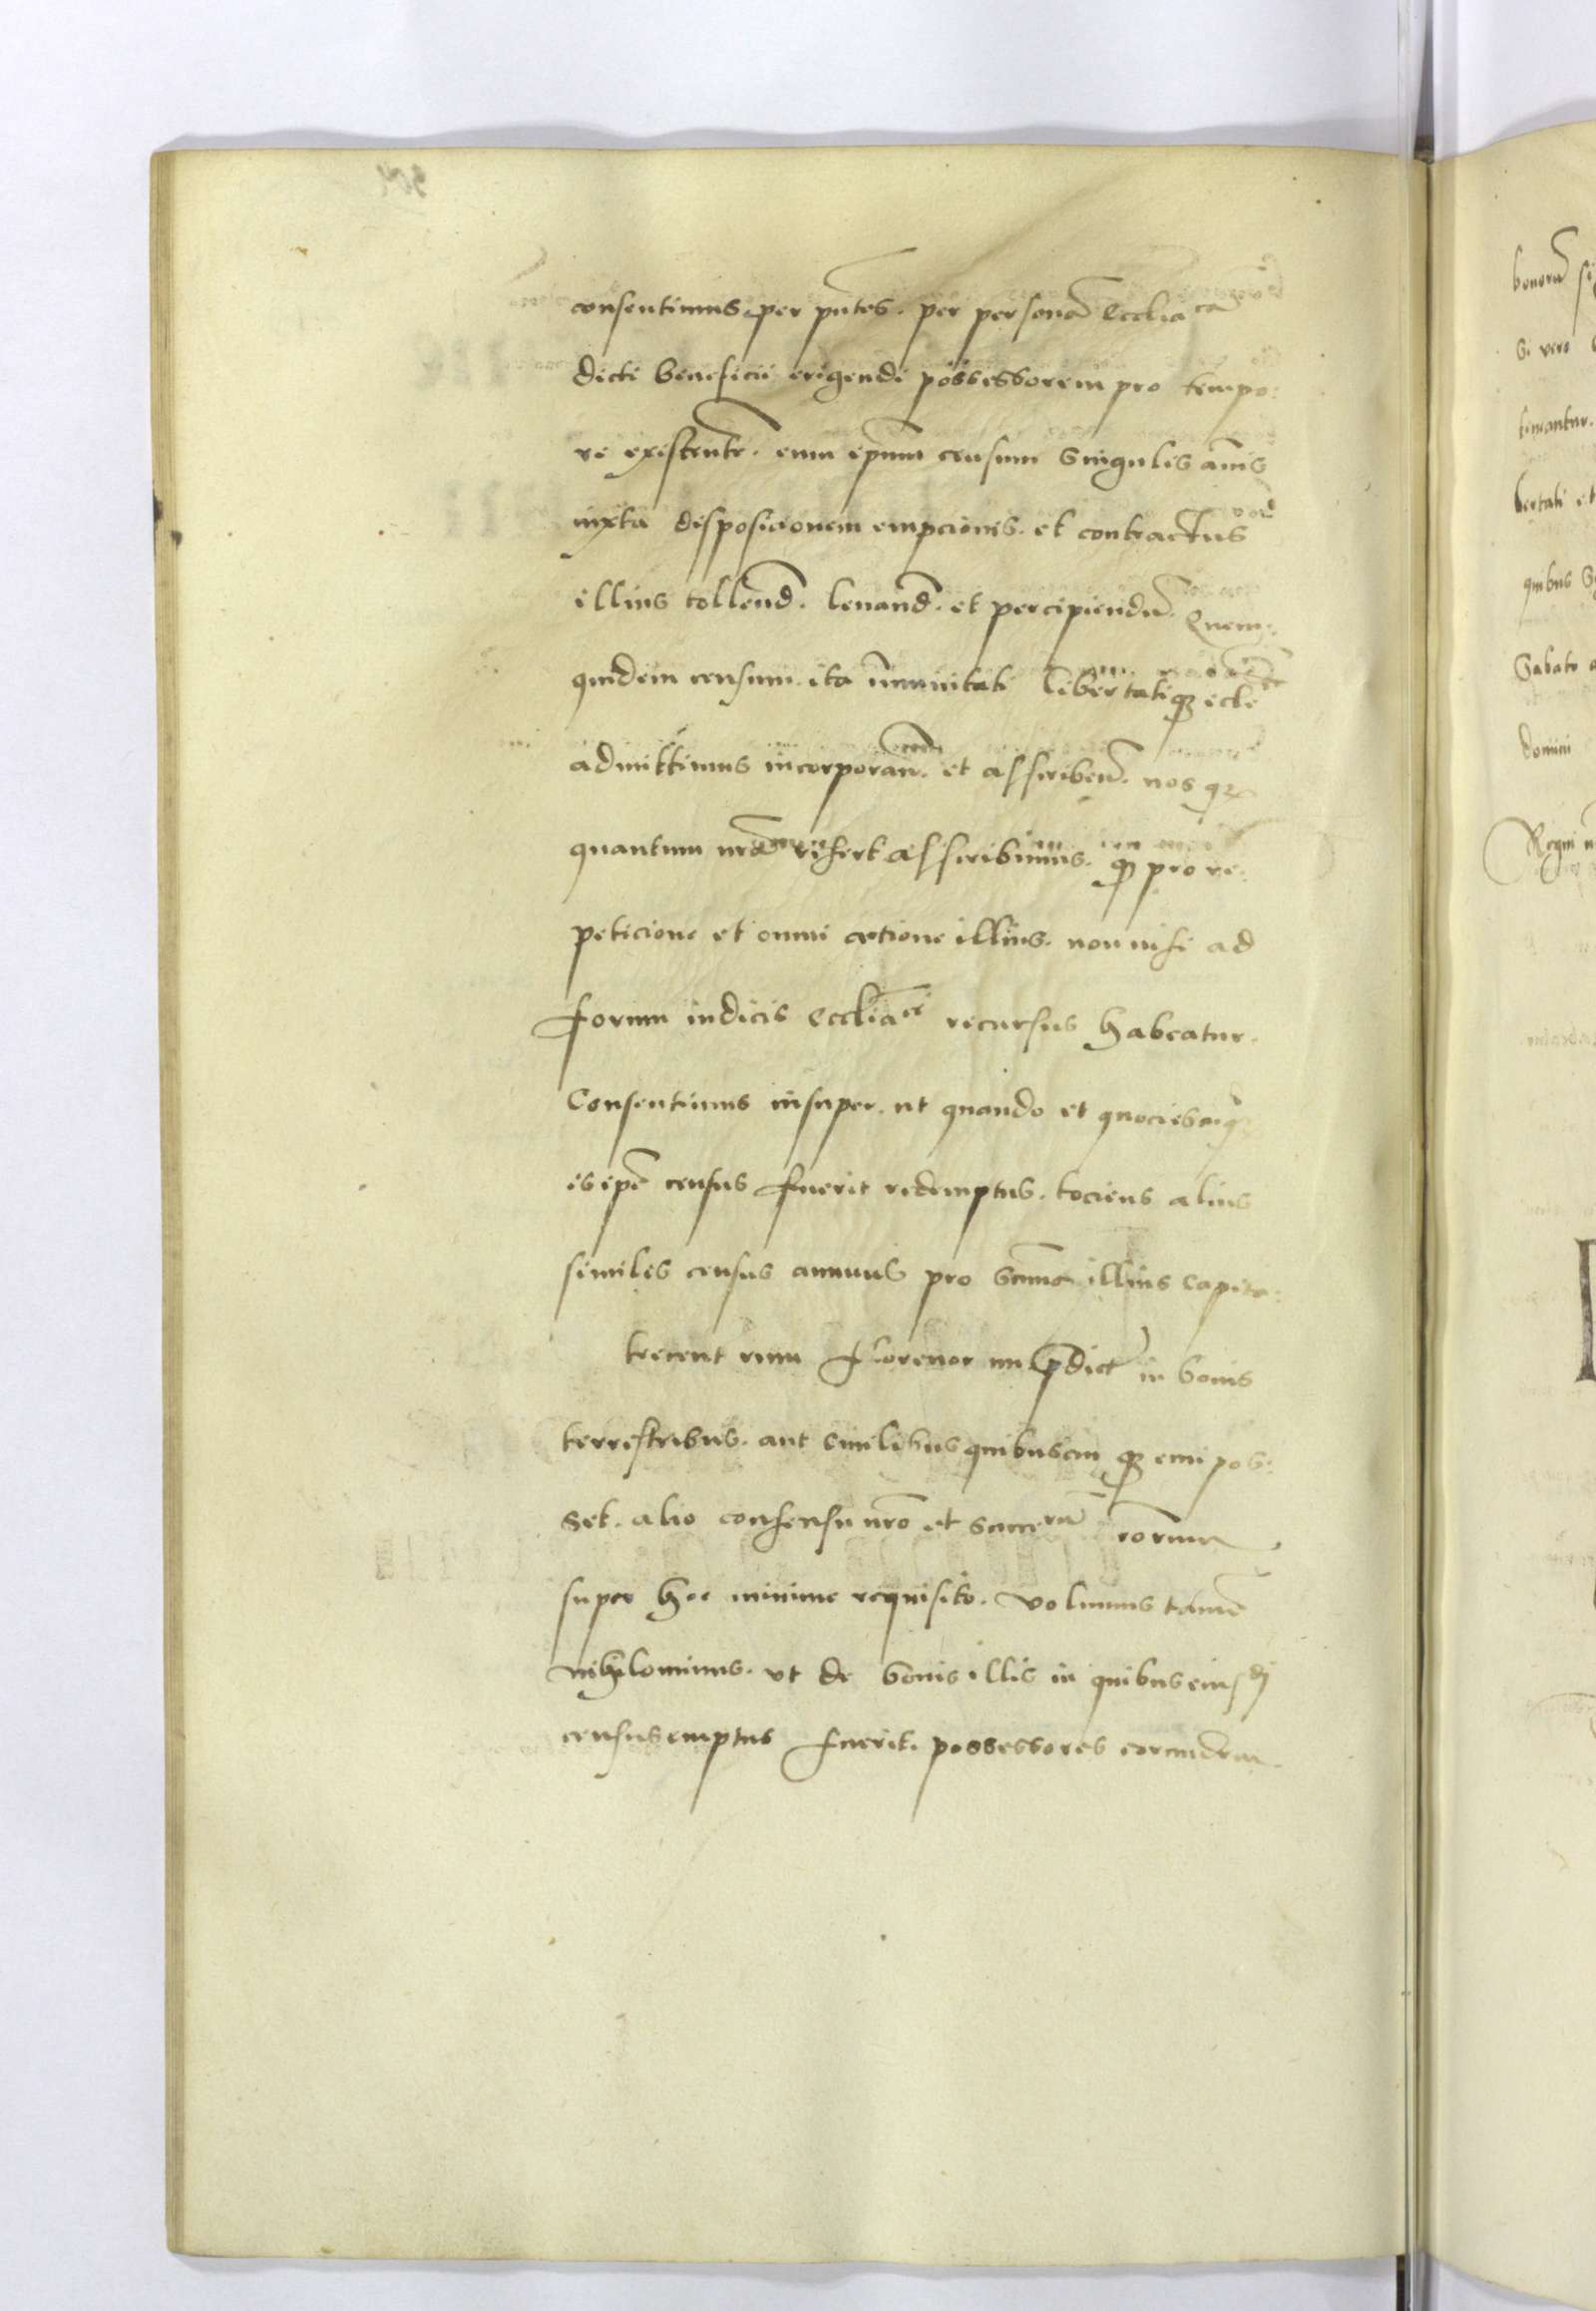 consentimus per pn̄tes. per personā Ecclīacā
dicti beneficii erigendi possessorem pro tempo:
re existentē. eum ip̄mm censum singulis annis
iuxta disposicionem empcionis. et contractus
illius tollend̄. leuand̄. et percipiendū. Quem:
quidem censum. ita im̄unitati libertatiqȝ eccl̄e
admittimus incorporan̄. et asscriben̄. nosqȝ
quantum nrā refert asscribimus. qd̄ pro re:
peticione et omni actione illius. non nisi ad
forum iudicis Ecclīaci recursus habeatur.
Consentimus insuper. ut quando et quociescūqȝ
is ip̄e census fuerit redemptus. tociens alius
similis census annuus pro sum̄a illius capita:
trecent rum florenor um p̄dict in bonis
terrestribus. aut Civilibus quibuscun qȝ emi pos:
set. alio consensu nr̄o et succe rū rorum
super hoc minime requisito. volumus tamē
nihilominus. vt de bonis illis in quibus eiusdj
census emptus fuerit. possessores eorundem
bonorū
Si vero
bertati et
quibus
Sabato
domini
Regni